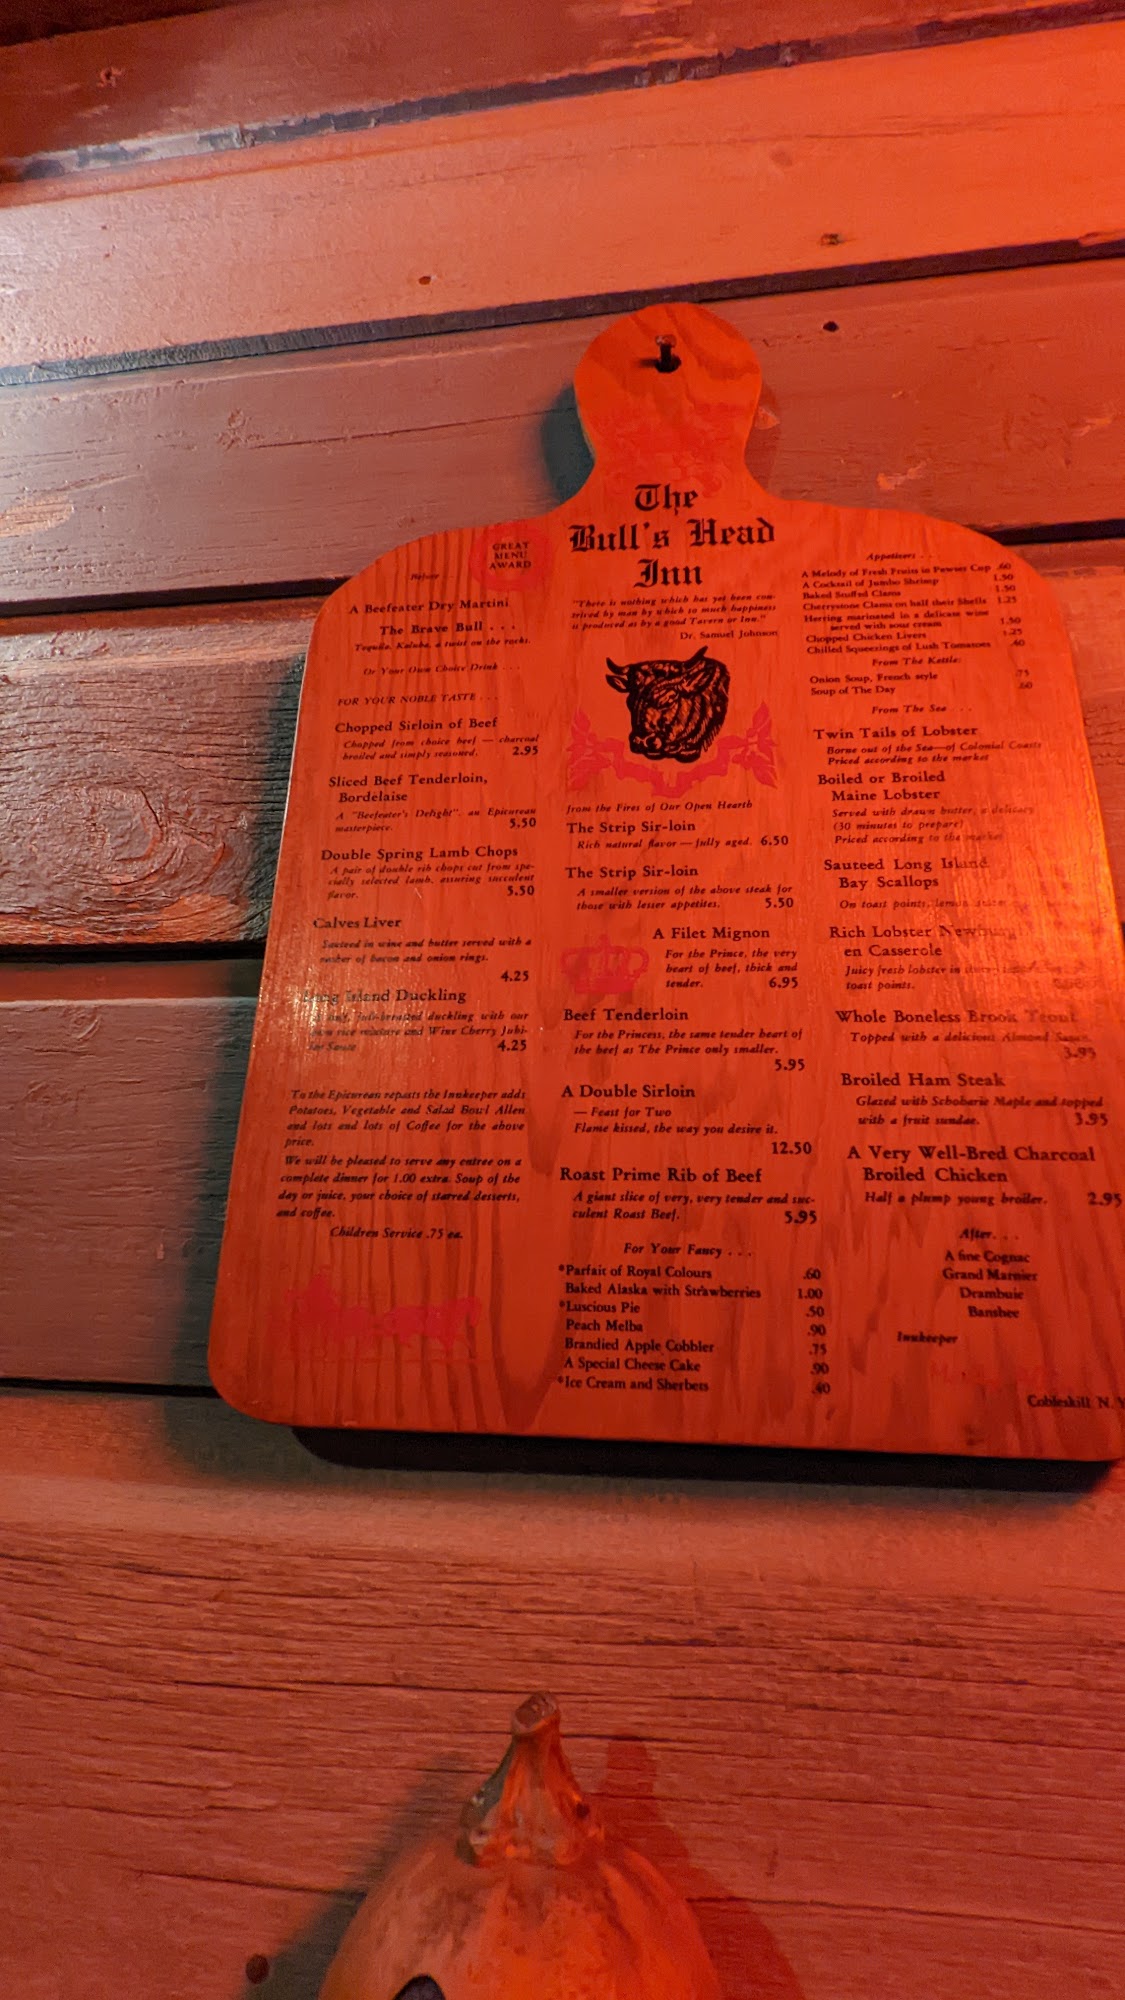 The
Bull's Head
Inn
"There is nothing which has yet been con-
trived by man by which so much happiness
is produced as by a good Tavern or Inn."
Dr. Samuel Johnson
GREAT
MENU
AWARD
Before . . .
A Beefeater Dry Martini
The Brave Bull . . .
Tequila, Kaluha, a twist on the rocks.
Or Your Own Choice Drink . . .
FOR YOUR NOBLE TASTE . . .
Chopped Sirloin of Beef
Chopped from choice beef — charcoal
broiled and simply seasoned. 2.95
Sliced Beef Tenderloin,
Bordelaise
A "Beefeater's Delight", an Epicurean
masterpiece. 5.50
Double Spring Lamb Chops
A pair of double rib chops cut from spe-
cially selected lamb, assuring succulent
flavor. 5.50
Calves Liver
Sauteed in wine and butter served with a
rasher of bacon and onion rings.
4.25
Long Island Duckling
full-breasted duckling with our
own rice mixture and Wine Cherry Jubi-
lee Sauce 4.25
To the Epicurean repasts the Innkeeper adds
Potatoes, Vegetable and Salad Bowl Allen
and lots and lots of Coffee for the above
price.
We will be pleased to serve any entree on a
complete dinner for 1.00 extra. Soup of the
day or juice, your choice of starred desserts,
and coffee.
Children Service .75 ea.
from the Fires of Our Open Hearth
The Strip Sir-loin
Rich natural flavor — fully aged. 6.50
The Strip Sir-loin
A smaller version of the above steak for
those with lesser appetites. 5.50
A Filet Mignon
For the Prince, the very
heart of beef, thick and
tender. 6.95
Beef Tenderloin
For the Princess, the same tender heart of
the beef as The Prince only smaller.
5.95
A Double Sirloin
— Feast for Two
Flame kissed, the way you desire it.
12.50
Roast Prime Rib of Beef
A giant slice of very, very tender and suc-
culent Roast Beef. 5.95
For Your Fancy . . .
*Parfait of Royal Colours .60
Baked Alaska with Strawberries 1.00
*Luscious Pie .50
Peach Melba .90
Brandied Apple Cobbler .75
A Special Cheese Cake .90
*Ice Cream and Sherbets .40
Appetizers . . .
A Melody of Fresh Fruits in Pewter Cup .60
A Cocktail of Jumbo Shrimp 1.50
Baked Stuffed Clams 1.50
Cherrystone Clams on half their Shells 1.25
Herring marinated in a delicate wine
served with sour cream 1.50
Chopped Chicken Livers 1.25
Chilled Squeezings of Lush Tomatoes .40
From The Kettle:
Onion Soup, French style .75
Soup of The Day .60
From The Sea . . .
Twin Tails of Lobster
Borne out of the Sea—of Colonial Coasts
Priced according to the market
Boiled or Broiled
Maine Lobster
Served with drawn butter, a delicacy
(30 minutes to prepare)
Priced according to the market
Sauteed Long Island
Bay Scallops
On toast points, lemon
Rich Lobster Newburg
en Casserole
Juicy fresh lobster in
toast points.
Whole Boneless Brook Trout
Topped with a delicious Almond Sauce.
3.95
Broiled Ham Steak
Glazed with Schoharie Maple and topped
with a fruit sundae. 3.95
A Very Well-Bred Charcoal
Broiled Chicken
Half a plump young broiler. 2.95
After. . .
A fine Cognac
Grand Marnier
Drambuie
Banshee
Innkeeper
Cobleskill N. Y